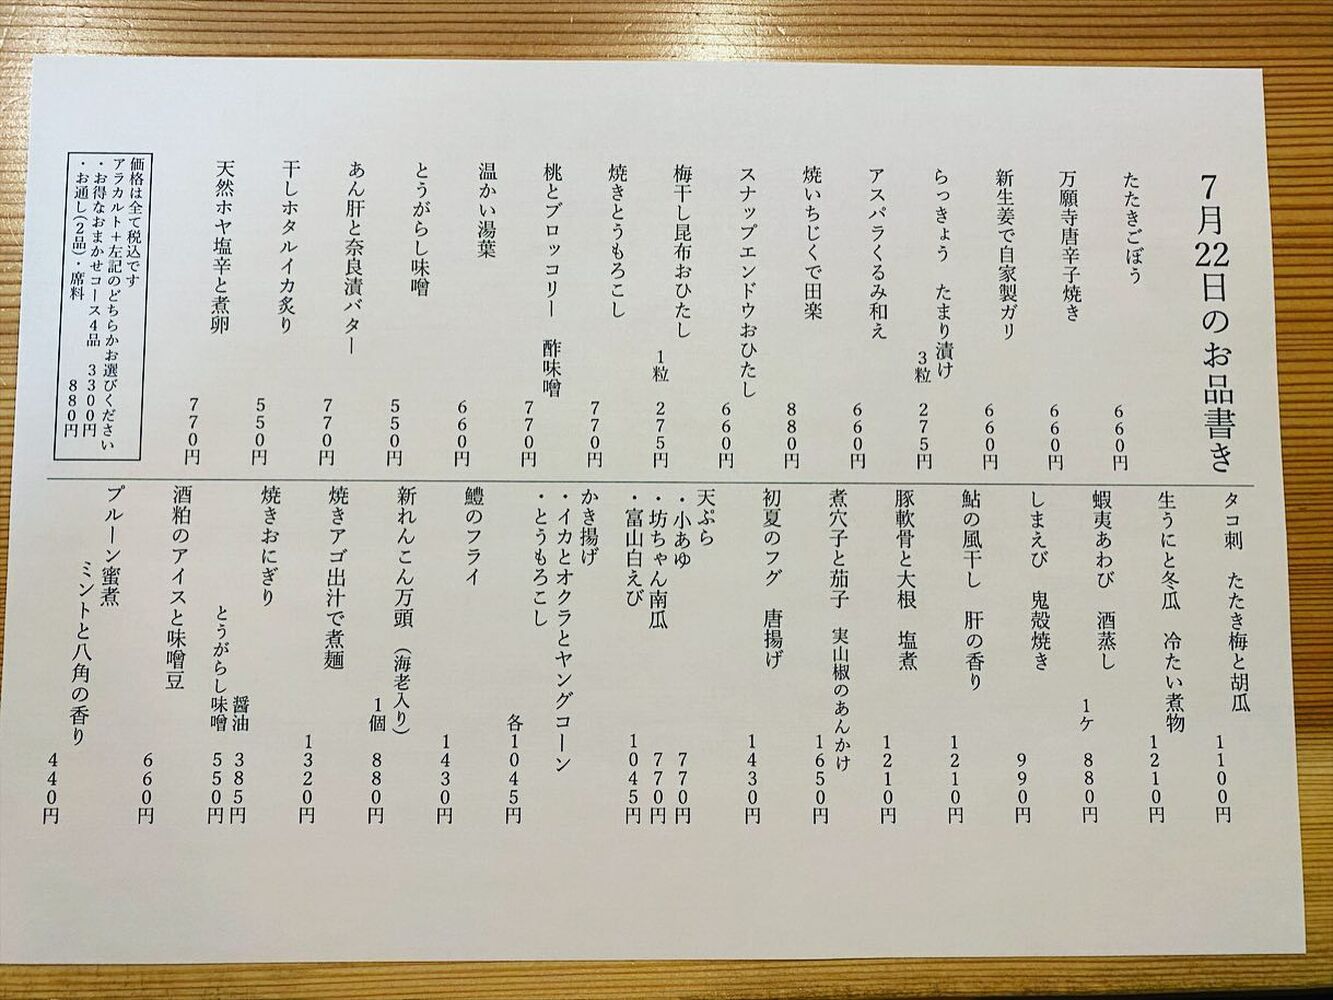 7月22日のお品書き
たたきごぼう 660円
万願寺唐辛子焼き 660円
新生姜で自家製ガリ 660円
らっきょう たまり漬け
3粒 275円
アスパラくるみ和え 660円
焼いちじくで田楽 880円
スナップエンドウおひたし 660円
梅干し昆布おひたし
1粒 275円
焼きとうもろこし 770円
桃とブロッコリー 酢味噌 770円
温かい湯葉 660円
とうがらし味噌 550円
あん肝と奈良漬バター 770円
干しホタルイカ炙り 550円
天然ホヤ塩辛と煮卵 770円
価格は全て税込です
アラカルト+左記のどちらかお選びください
・お得なおまかせコース4品 3300円
・お通し(2品)・席料 880円
タコ刺 たたき梅と胡瓜 1100円
生うにと冬瓜 冷たい煮物 1210円
蝦夷あわび 酒蒸し
1ケ 880円
しまえび 鬼殻焼き 990円
鮎の風干し 肝の香り 1210円
豚軟骨と大根 塩煮 1210円
煮穴子と茄子 実山椒のあんかけ 1650円
初夏のフグ 唐揚げ 1430円
天ぷら
・小あゆ 770円
・坊ちゃん南瓜 770円
・富山白えび 1045円
かき揚げ
・イカとオクラとヤングコーン
・とうもろこし
各1045円
鱧のフライ 1430円
新れんこん万頭(海老入り)
1個 880円
焼きアゴ出汁で煮麺 1320円
焼きおにぎり
醤油 385円
とうがらし味噌 550円
酒粕のアイスと味噌豆 660円
プルーン蜜煮
ミントと八角の香り 440円